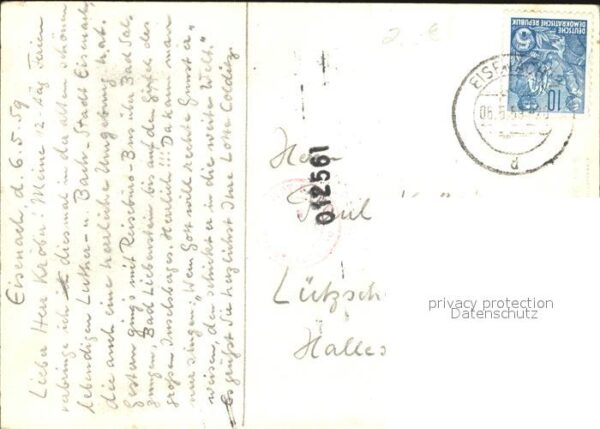 Eisenach, d. 6.5.59
Lieber Herr Kröber! Meine 12-täg. Ferien
verbringe ich diesmal in der alten schönen
lebendigen Luther- u. Bach-Stadt Eisenach,
die auch eine herrliche Umgebung hat.
Gestern ging's mit Reisebüro-Bus über Bad Sal
zungen, Bad Liebenstein bis auf den Gipfel des
großen Inselsberges. Herrlich!!! Da kann man
nur singen: "Wem Gott will rechte Gunst er
weisen, den schickt er in die weite Welt."
Es grüßt Sie herzlichst Ihre Lotte Colditz
Herrn
Paul
Lützsch
Halles
012561
DEUTSCHE
DEMOKRATISCHE REPUBLIK
5
10
EISENACH
d
privacy protection
Datenschutz